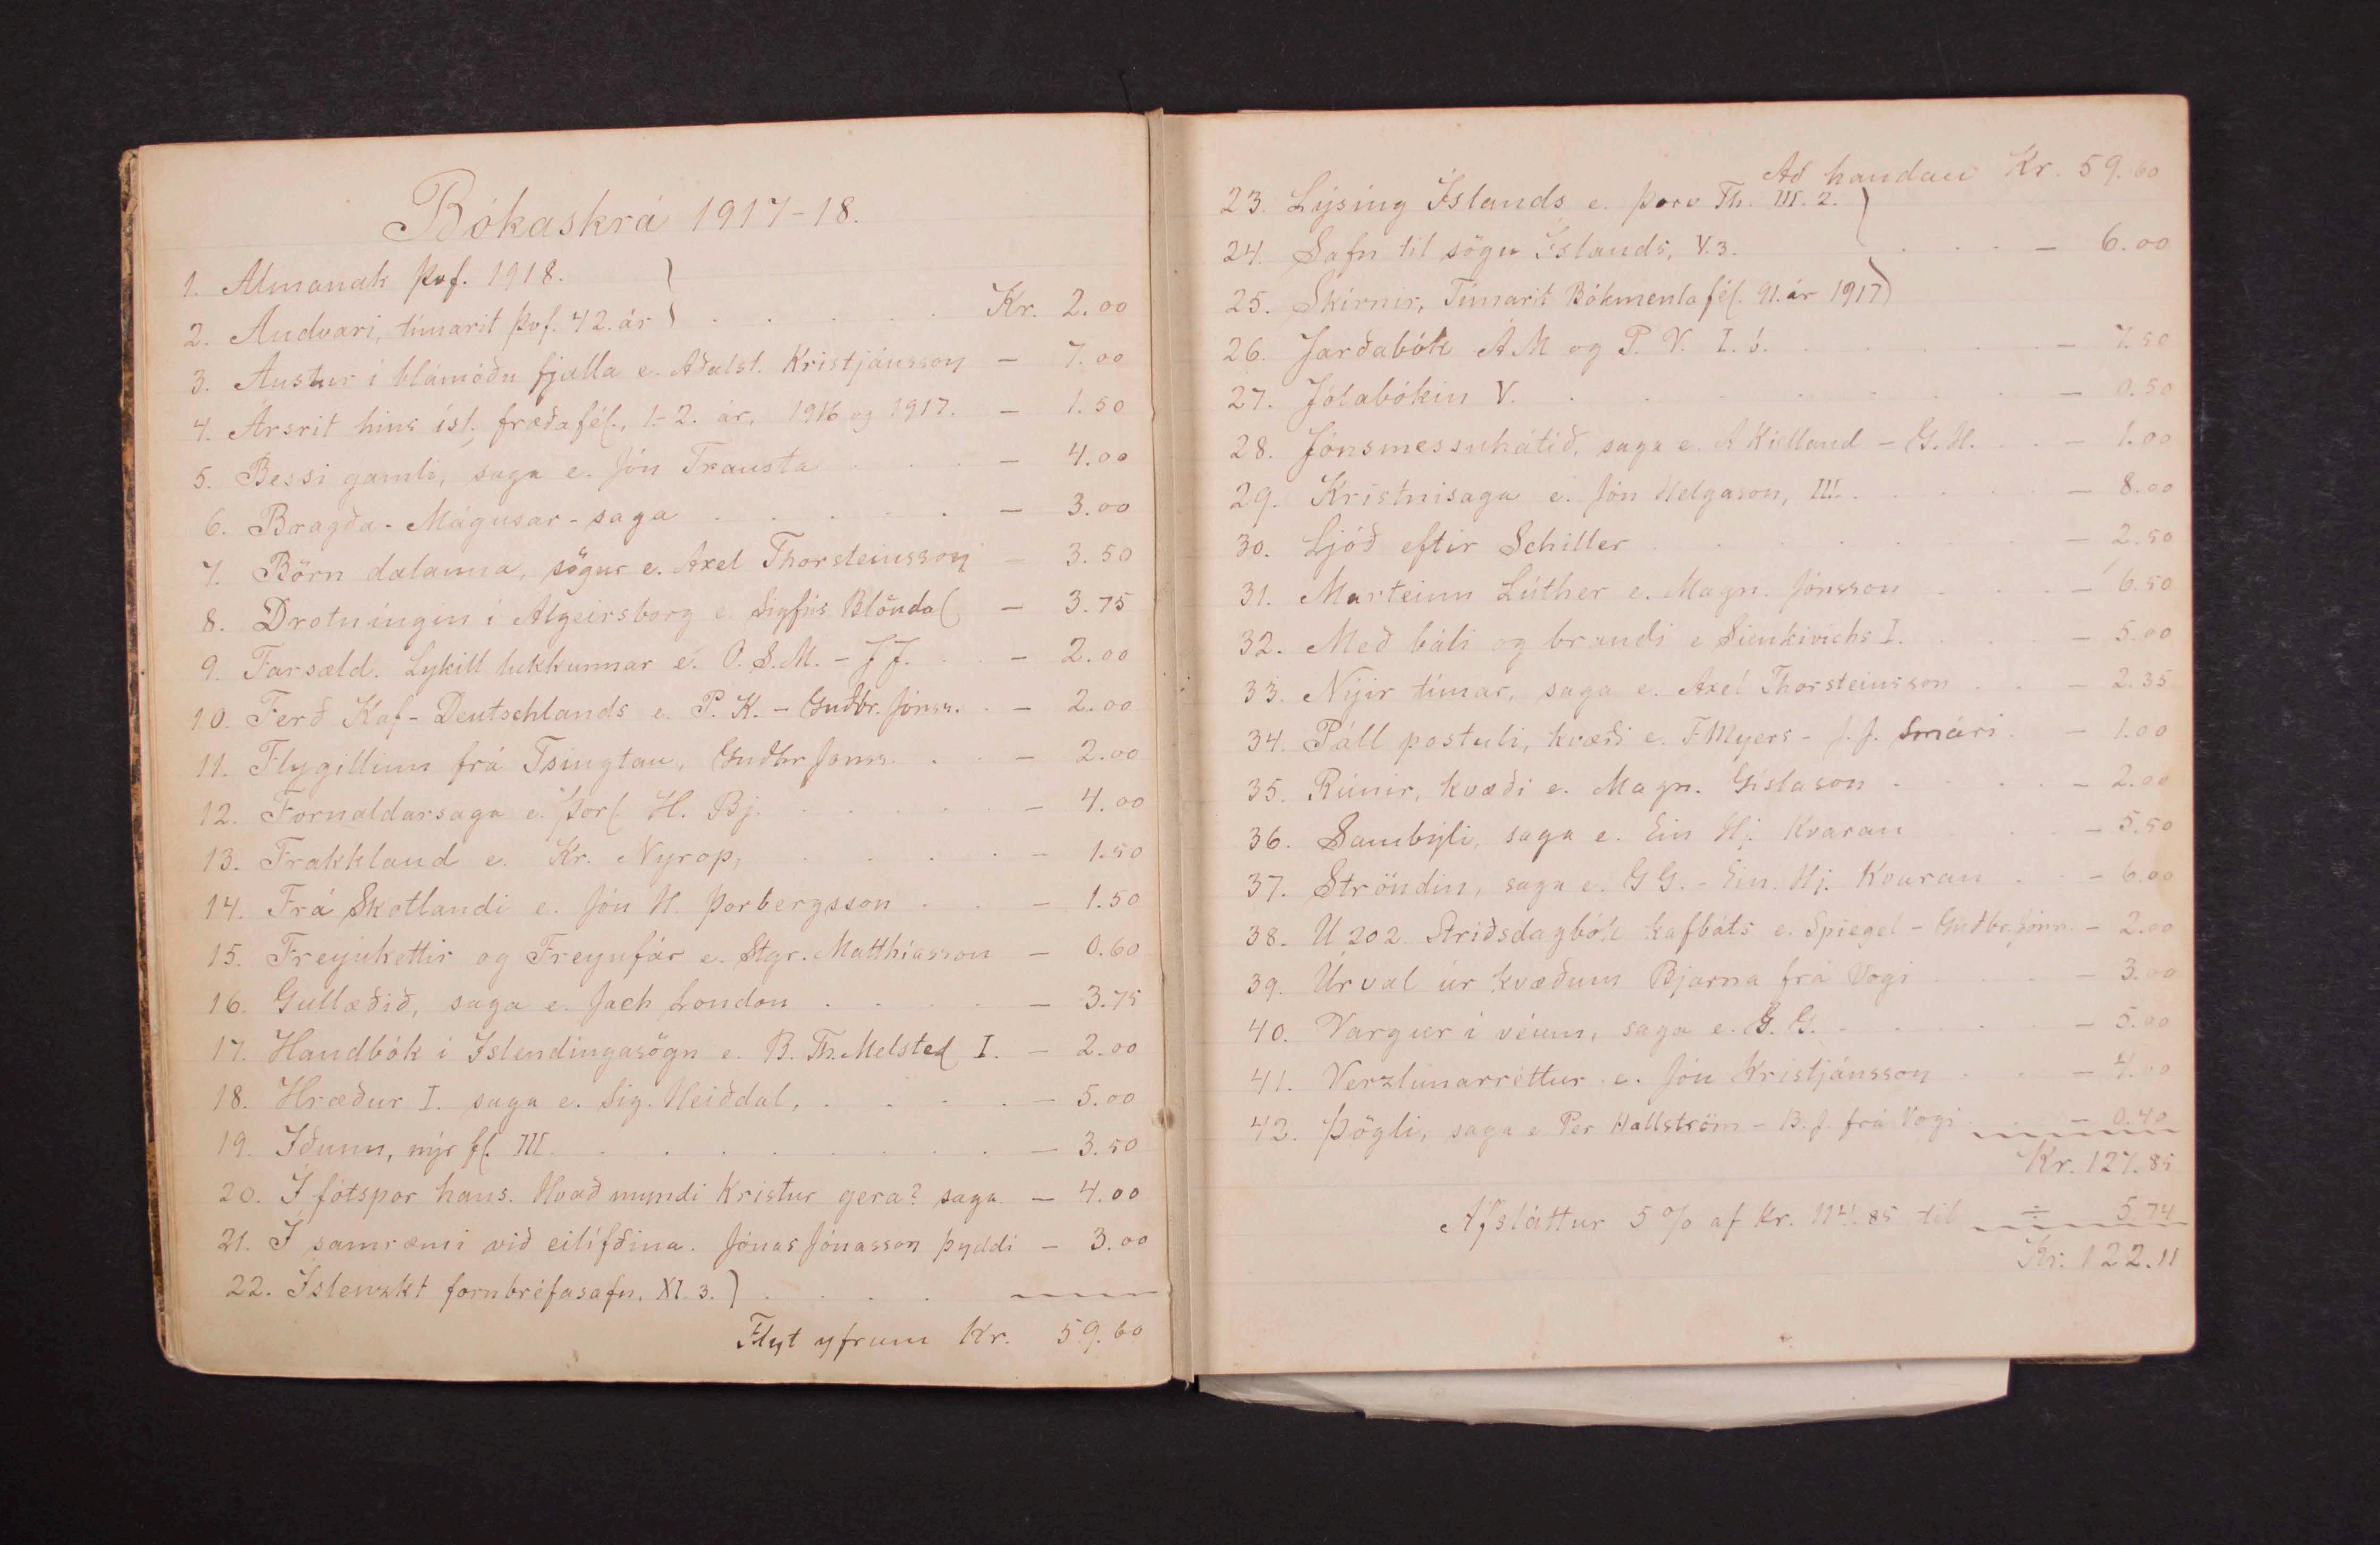 Bókaskrá 1917-18.
1. Almanak Þvf. 1918. }
2. Andvari, tímarit Þvf. 42. ár } . . . . . Kr. 2.00
3. Austur í blámóðu fjalla e. Aðalst. Kristjánsson — 7.00
4. Ársrit hins ísl. fræðafél., 1.-2. ár, 1916 og 1917. — 1.50
5. Bessi gamli, saga e. Jón Trausta . . . — 4.00
6. Bragða-Mágusar-saga . . . . . — 3.00
7. Börn dalanna, sögur e. Axel Thorsteinsson — 3.50
8. Drotningin í Algeirsborg e. Sigfús Blöndal — 3.75
9. Farsæld. Lykill lukkunnar e. O. S. M. - J J. . . — 2.00
10. Ferð Kaf-Deutschlands e. P. K. - Guðbr. Jónss. . — 2.00
11. Flygillinn frá Tsingtau, Guðbr Jónss. . . — 2.00
12. Fornaldarsaga e. Þorl. H. Bj. . . . . — 4.00
13. Frakkland e. Kr. Nyrop, . . . . — 1.50
14. Frá Skotlandi e. Jón H. Þorbergsson . . — 1.50
15. Freyjukettir og Freyufár e. Stgr. Matthíasson — 0.60
16. Gullæðið, saga e. Jack London . . . . — 3.75
17. Handbók í Íslendingasögu e. B. Th. Melsted I. — 2.00
18. Hræður I. saga e. Sig. Heiðdal, . . . . — 5.00
19. Iðunn, nýr fl. III. . . . . . . . — 3.50
20. Í fótspor hans. Hvað mundi Kristur gera? saga — 4.00
21. Í samræmi við eilífðina. Jónas Jónasson þyddi — 3.00
22. Íslenzkt fornbréfasafn. XI. 3. } . . . .
Flyt yfrum Kr. 59.60
Að handan Kr. 59.60
23. Lýsing Íslands e. Þorv Th. III. 2. }
24. Safn til sögu Íslands, V. 3. . . . — 6.00
25. Skírnir, Tímarit Bókmentafél. 91. ár 1917 }
26. Jarðabók Á M og P. V. I. 3. . . . . . — 7.50
27. Jólabókin V. . . . . . . . — 0.50
28. Jónsmessuhátíð, saga e. A Kielland - G. H. . . — 1.00
29. Kristnisaga e. Jón Helgason, III. . . . . — 8.00
30. Ljóð eftir Schiller . . . . . . — 2.50
31. Marteinn Lúther e. Magn. Jónsson . . . — 6.50
32. Með báli og brandi e Sienkivichs I. . . . — 5.00
33. Nýir tímar, saga e. Axel Thorsteinsson . . — 2.35
34. Páll postuli, kvæði e. F Myers - J. J. Smári . — 1.00
35. Rúnir, kvæði e. Magn. Gíslason . . . — 2.00
36. Sambýli, saga e. Ein Hj. Kvaran . — 5.50
37. Ströndin, saga e. G G. - Ein. Hj. Kvaran . . — 6.00
38. U 202. Stríðsdagbók kafbáts e. Spiegel - Guðbr. Jónss. — 2.00
39. Úrval úr kvæðum Bjarna frá Vogi . . . — 3.00
40. Vargur í véum, saga e. G. G. . . . . — 5.00
41. Verzlunarréttur e. Jón Kristjánsson . . — 4.00
42. Þögli, saga e Per Hallström - B. J. frá Vogi . . — 0.40
Kr. 127.85
Afsláttur 5 % af kr. 114.85 til ÷ 5.74
Kr. 122.11